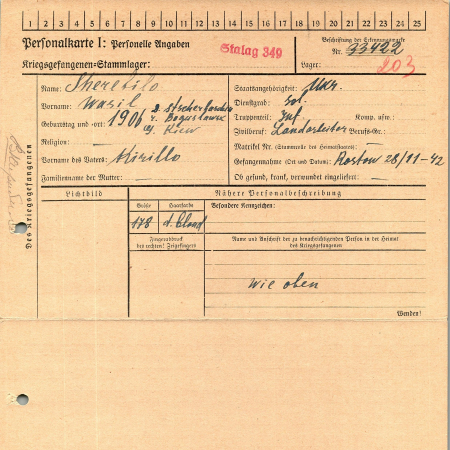 1 2 3 4 5 6 7 8 9 10 11 12 13 14 15 16 17 18 19 20 21 22 23 24 25
Personalkarte I: Personelle Angaben
Kriegsgefangenen-Stammlager:
Stalag 349
Beschriftung der Erkennungsmarke
Nr. 33422
Lager: 203
Des Kriegsgefangenen
Name: Sherebilo
Vorname: Wasil
Geburtstag und -ort: 1906
r. Boguslawsk
Kiew
Religion: —
Vorname des Vaters: Kirillo
Familienname der Mutter:
Staatsangehörigkeit: Ukr.
Dienstgrad: Sol.
Truppenteil: Inf. Komp. usw.:
Zivilberuf: Berufs-Gr.:
Matrikel Nr. (Stammrolle des Heimatstaates): —
Gefangennahme (Ort und Datum): Rostow 28/11-42
Ob gesund, krank, verwundet eingeliefert: —
Lichtbild
Nähere Personalbeschreibung
Größe
Haarfarbe
Besondere Kennzeichen:
178
d. blond
Fingerabdruck
des rechten! Zeigefingers
Name und Anschrift der zu benachrichtigenden Person in der Heimat
des Kriegsgefangenen
wie oben
Wenden!